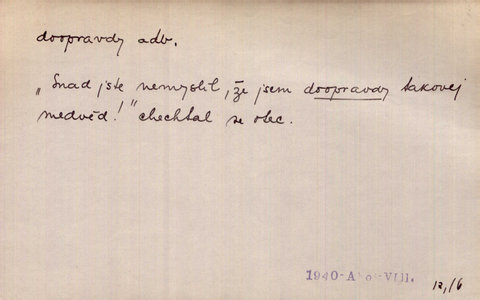 doopravdy adv.
„Snad jste nemyslil, že jsem doopravdy takovej
medvěd!" chechtal se otec.
1940-A VIII.
12/6